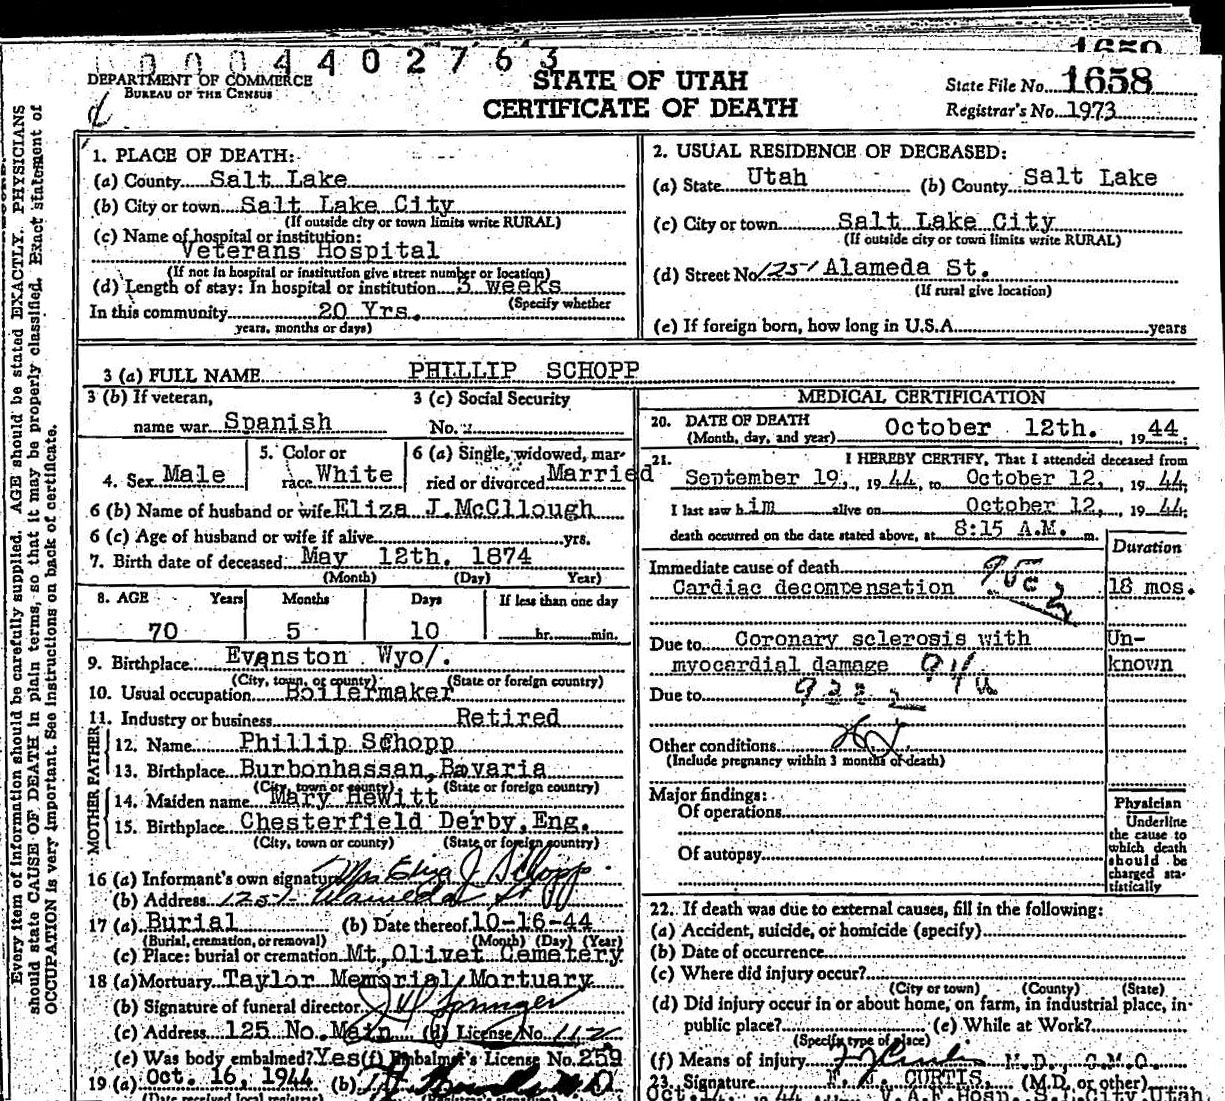 0 0 0 4 4 0 2 7 6 3
1659
DEPARTMENT OF COMMERCE
BUREAU OF THE CENSUS
STATE OF UTAH
CERTIFICATE OF DEATH
State File No. 1658
Registrar's No. 1973
Every item of information should be carefully supplied. AGE should be stated EXACTLY. PHYSICIANS
should state CAUSE OF DEATH in plain terms, so that it may be properly classified. Exact statement of
OCCUPATION is very important. See instructions on back of certificate.
1. PLACE OF DEATH:
(a) County Salt Lake
(b) City or town Salt Lake City
(If outside city or town limits write RURAL)
(c) Name of hospital or institution:
Veterans Hospital
(If not in hospital or institution give street number or location)
(d) Length of stay: In hospital or institution 3 weeks
(Specify whether
In this community 20 Yrs.
years, months or days)
2. USUAL RESIDENCE OF DECEASED:
(a) State Utah (b) County Salt Lake
(c) City or town Salt Lake City
(If outside city or town limits write RURAL)
(d) Street No. 1251 Alameda St.
(If rural give location)
(e) If foreign born, how long in U.S.A. years
3 (a) FULL NAME PHILLIP SCHOPP
3 (b) If veteran,
name war Spanish
3 (c) Social Security
No.
4. Sex Male
5. Color or
race White
6 (a) Single, widowed, mar-
ried or divorced Married
6 (b) Name of husband or wife Eliza J.McCllough
6 (c) Age of husband or wife if alive yrs.
7. Birth date of deceased May 12th. 1874
(Month) (Day) Year)
8. AGE Years Months Days If less than one day
70 5 10 hr. min.
9. Birthplace Evanston Wyo/.
(City, town, or county) (State or foreign country)
10. Usual occupation Boilermaker
11. Industry or business Retired
MOTHER FATHER
12. Name Phillip Schopp
13. Birthplace Burbonhassan, Bavaria
(City, town or county) (State or foreign country)
14. Maiden name Mary Hewitt
15. Birthplace Chesterfield Derby, Eng.
(City, town or county) (State or foreign country)
16 (a) Informant's own signature Mrs Eliza J Schopp
(b) Address 1251 Alameda St
17 (a) Burial (b) Date thereof 10-16-44
(Burial, cremation, or removal) (Month) (Day) (Year)
(c) Place: burial or cremation Mt, Olivet Cemetery
18 (a) Mortuary Taylor Memorial Mortuary
(b) Signature of funeral director
(c) Address 125 No. Main (d) License No.
(e) Was body embalmed? Yes (f) Embalmer's License No. 259
19 (a) Oct. 16, 1944 (b)
(Date received local registrar)
MEDICAL CERTIFICATION
20. DATE OF DEATH
(Month, day, and year) October 12th. 19 44
21. I HEREBY CERTIFY, That I attended deceased from
September 19, 19 44, to October 12, 19 44,
I last saw h im alive on October 12, 19 44;
death occurred on the date stated above, at 8:15 A.M. m.
Duration
Immediate cause of death
Cardiac decompensation 18 mos.
Due to Coronary sclerosis with Un-
myocardial damage known
Due to
Other conditions
(Include pregnancy within 3 months of death)
Major findings:
Of operations
Of autopsy
Physician
Underline
the cause to
which death
should be
charged sta-
tistically
22. If death was due to external causes, fill in the following:
(a) Accident, suicide, or homicide (specify)
(b) Date of occurrence
(c) Where did injury occur?
(City or town) (County) (State)
(d) Did injury occur in or about home, on farm, in industrial place, in
public place? (e) While at Work?
(Specify type of place)
(f) Means of injury M.D., C.M.O.
23. Signature CURTIS, (M.D. or other)
V.A.F.Hosp. S.L.City, Utah